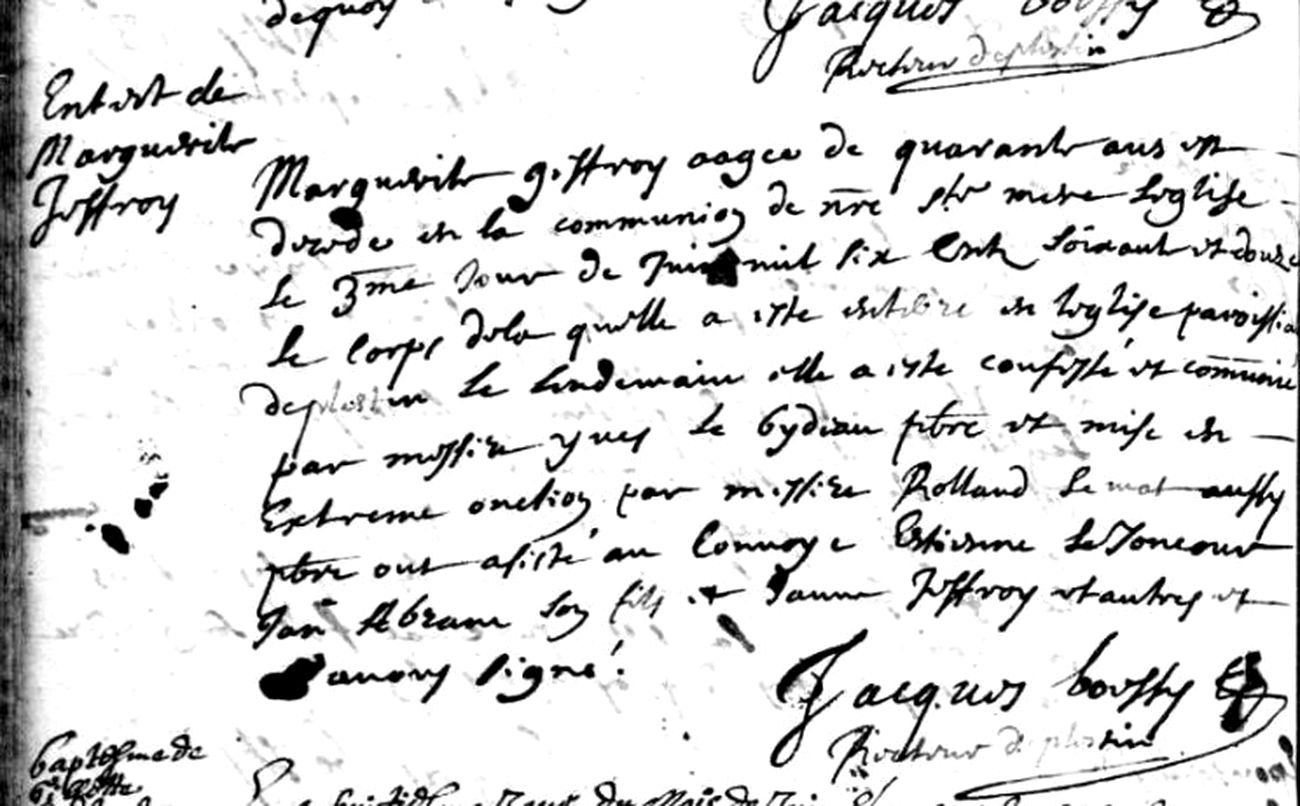 dequoy
Jacques boussy
Recteur de plestin
Enterrt de
Marguerite
Jeffroy
Marguerite geffroy aagee de quarante ans est
decede en la communion de nre ste mere leglise
le 3me jour de Juin mil six cents soixante et douze
le corps de la quelle a este enterre en leglise paroissia
de plestin le lendemain elle a este confesse et communié
par messire yves le bydeau pbre et mise en
Extreme onction par messire Rolland le mat aussy
pbre ont asisté au convoye Estienne le Joncour
Jan son fils et Janne Jeffroy et autres et
avons signé
Jacques boussy
Recteur de plestin
baptesme de